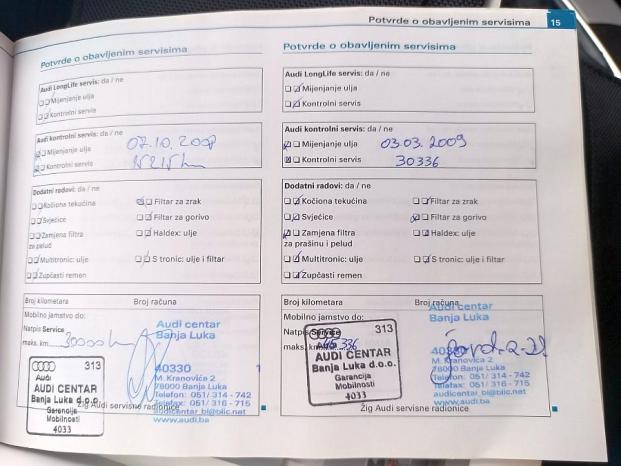 Potvrde o obavljenim servisima 15
Potvrde o obavljenim servisima
Audi LongLife servis: da / ne
Mijenjanje ulja
Kontrolni servis
Audi kontrolni servis: da / ne
Mijenjanje ulja 07.10.2008
Kontrolni servis 15215 km
Dodatni radovi: da / ne
Kočiona tekućina Filtar za zrak
Svjećice Filtar za gorivo
Zamjena filtra Haldex: ulje
za pelud
Multitronic: ulje S tronic: ulje i filtar
Zupčasti remen
Broj kilometara Broj računa
Mobilno jamstvo do:
Natpis Service
maks. km 30000 km
Audi centar
Banja Luka
40330 1
M. Kranovića 2
78000 Banja Luka
Telefon: 051/ 314 - 742
Telefax: 051/ 316 - 715
audicentar_bl@blic.net
www.audi.ba
313
Audi
AUDI CENTAR
Banja Luka d.o.o.
Garancija
Mobilnosti
4033
Žig Audi servisne radionice
Potvrde o obavljenim servisima
Audi LongLife servis: da / ne
Mijenjanje ulja
Kontrolni servis
Audi kontrolni servis: da / ne
Mijenjanje ulja 03.03.2009
Kontrolni servis 30336
Dodatni radovi: da / ne
Kočiona tekućina Filtar za zrak
Svjećice Filtar za gorivo
Zamjena filtra Haldex: ulje
za prašinu i pelud
Multitronic: ulje S tronic: ulje i filtar
Zupčasti remen
Broj kilometara Broj računa
Mobilno jamstvo do:
Natpis Service
maks. km 45 336
Audi centar
Banja Luka
M. Kranovića 2
78000 Banja Luka
Telefon: 051/ 314 - 742
Telefax: 051/ 316 - 715
audicentar_bl@blic.net
www.audi.ba
313
AUDI CENTAR
Banja Luka d.o.o.
Garancija
Mobilnosti
4033
Žig Audi servisne radionice